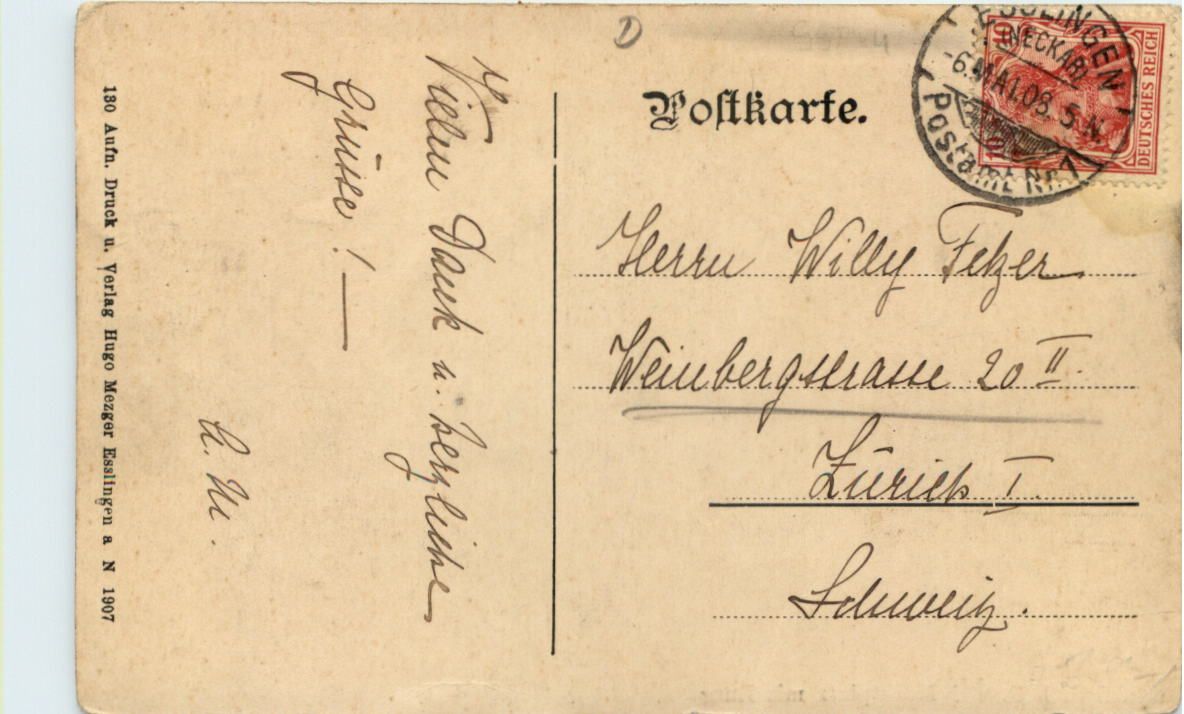 D
Postkarte.
ESSLINGEN
(NECKAR)
-6.MAI.08. 5-N.
Postamt Nr. 1
10
DEUTSCHES REICH
Herrn Willy Fetzer
Weinbergstrasse 20 II.
Zürich I.
Schweiz.
Vielen Dank u. herzliche
Grüsse! —
130 Aufn. Druck u. Verlag Hugo Mezger Esslingen a N 1907